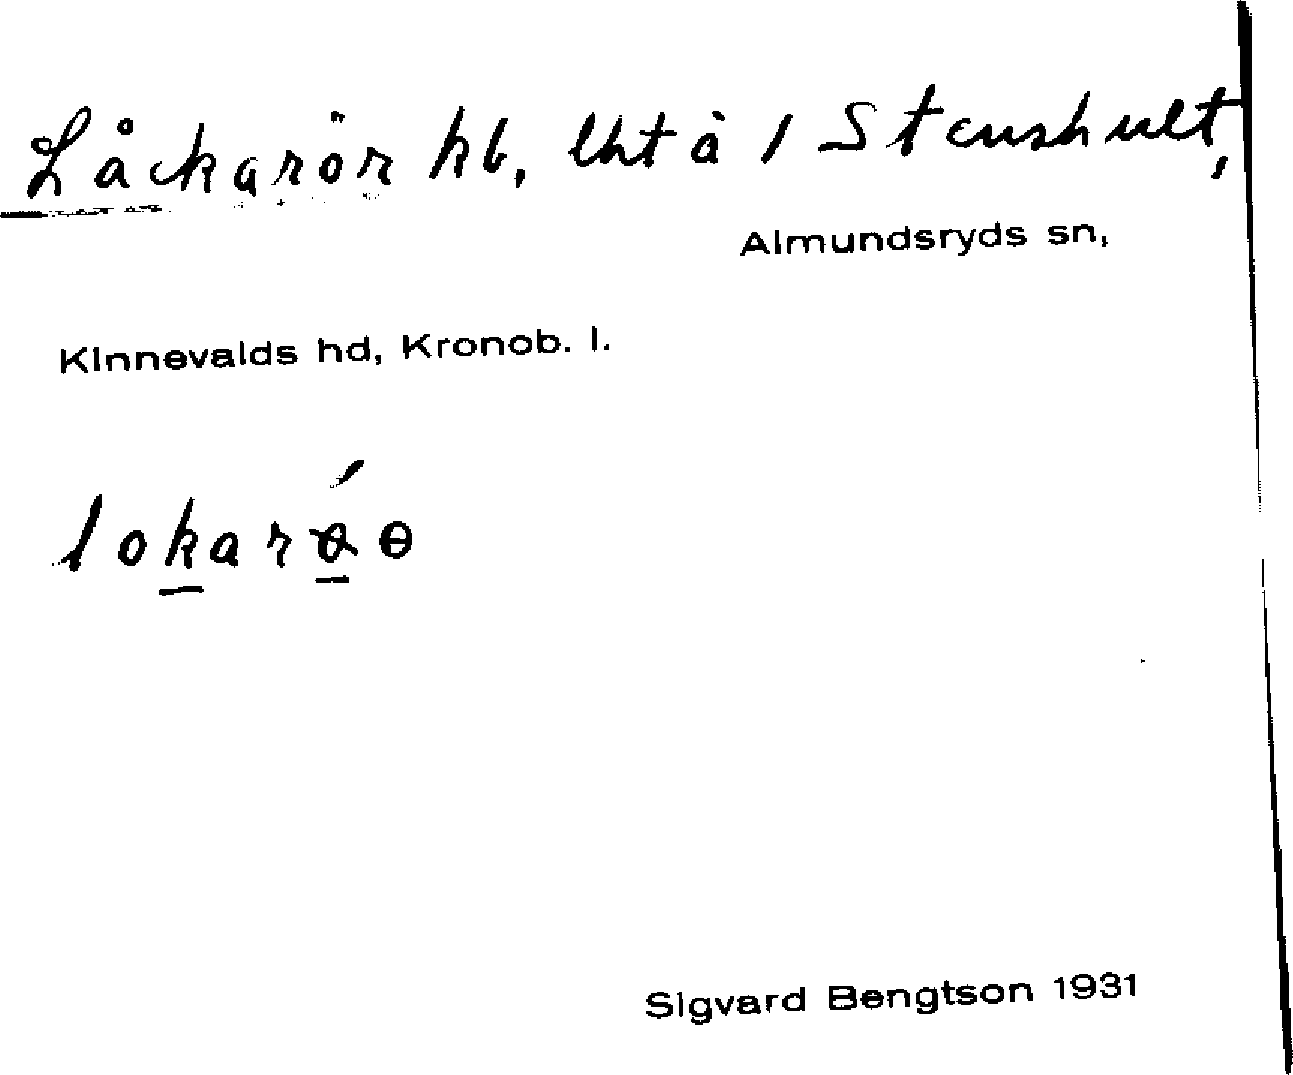 Låckarör hb, lht å 1 Stenshult,
Almundsryds sn,
Kinnevalds hd, Kronob. l.
Sigvard Bengtson 1931